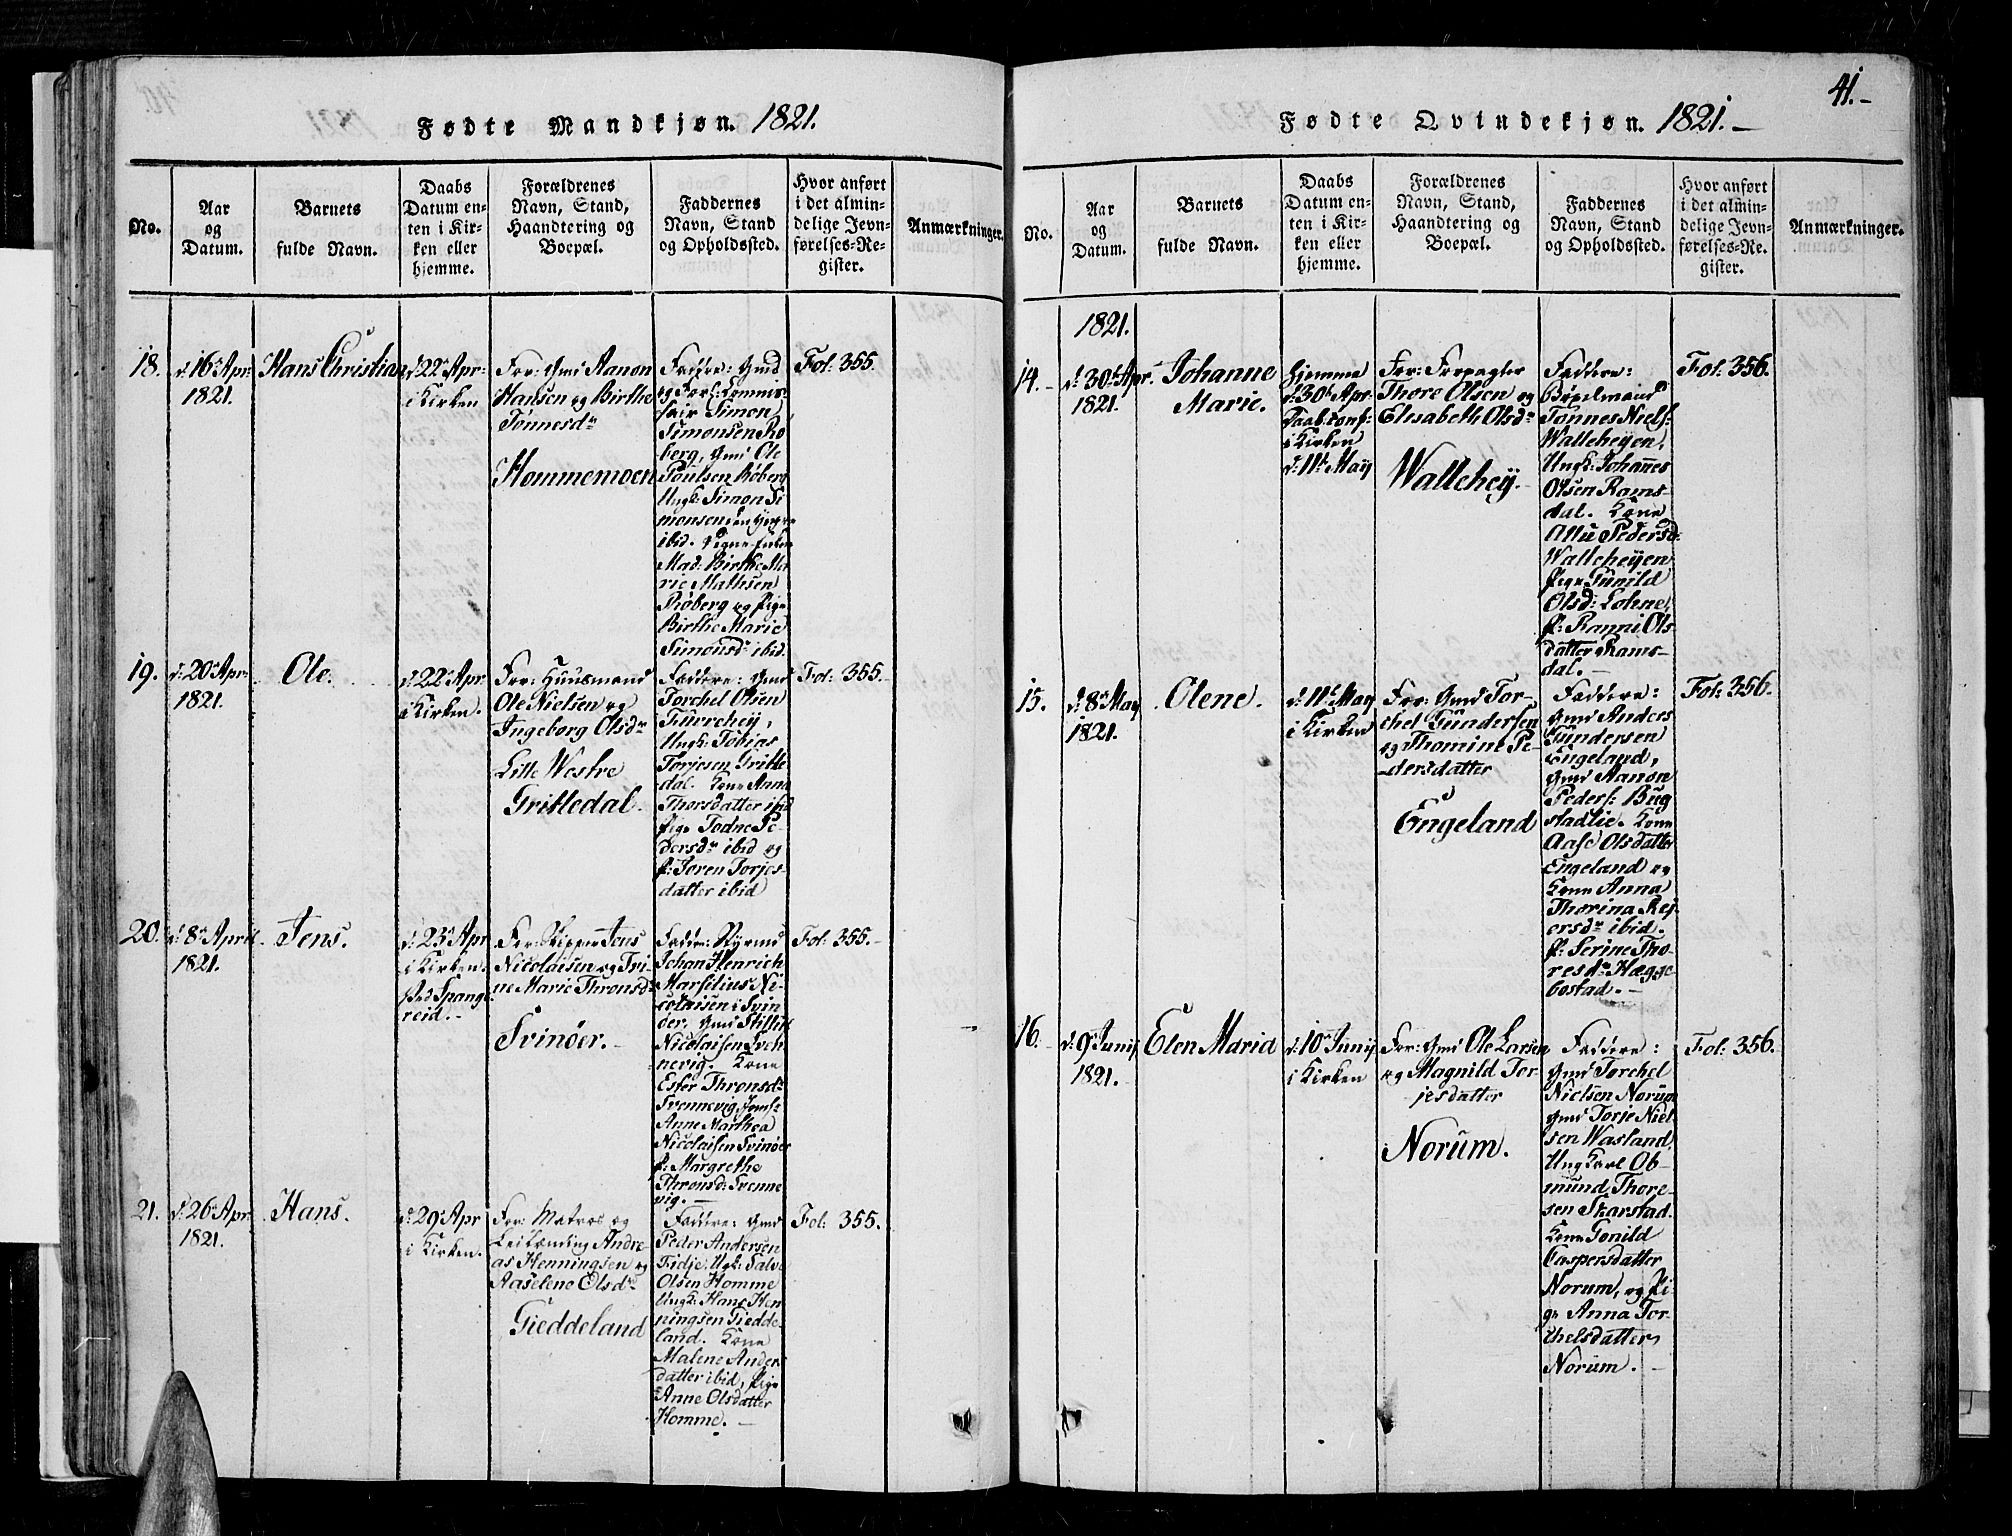 Fødte Mandkjøn. 1821.
No.
Aar
og
Datum.
Barnets
fulde Navn.
Daabs
Datum en-
ten i Kir-
ken eller
hjemme.
Forældrenes
Navn, Stand,
Haandtering og
Boepæl.
Faddernes
Navn, Stand
og Opholdssted.
Hvor anført
i det almin-
delige Jevn-
førelses-Re-
gister.
Anmærkninger.
18.
d: 16de Apr:
1821.
Hans Christian
d: 22de Apr:
i Kirken
For: Gmd Aanon
Hansen og Birthe
Tønnesdr
Hommemoen
Faddre: Gmd
og Forl: Commis-
sair Simon
Simonsen Rø
berg, Gmd Ole
Poulsen Røberg
Ungk: Simon Si
monsen den Yngre
ibid.
Mad: Birthe Ma
rie Mathsen
Røberg og Pige
Birthe Marie
Simonsdr ibid.
Fol: 355.
19.
d: 20de Apr:
1821.
Ole.
d: 22de Apr
i Kirken.
For: Huusmand
Ole Nielsen og
Ingeborg Olsdr
Lille Westre
Grittledal.
Faddre: Gmd
Torchel Olsen
Fuurehey,
Ungk: Tobias
Torjesen Grittle
dal. Kone Anna
Thorsdatter ibid
Pige Todne Pe
dersdr ibid og
P: Joren Torjes-
datter ibid
Fol: 355.
20.
d: 8de April
1821.
Jens.
d: 23de Apr
i Kirken.
Ved Spange
reid.
For: Skipper Jens
Nicolaisen og Tri
ne Marie Thronsdr
Svinøer.
Faddre: Styrmd
Johan Henrich
Marsilius Ni-
colaisen i Svin
øer. Gmd
Nicolaisen Sven
nevig. Kone
Ester Thronsdr
Svennevig, Jomf:
Anne Marthea
Nicolaisen Svinøer
P: Margrethe
Thronsd: Svenne
vig.
Fol: 355.
21.
d: 26de Apr:
1821.
Hans.
d: 29de Apr
i Kirken.
For: Matros og
Leilænding Andre
as Henningsen og
Aaselene Olsdr
Gieddeland
Faddre: Gmd
Peder Andersen
Fidje, Ugk: Salve
Olsen Homme
Ungk: Hans Hen
ningsen Giedde
land. Kone
Malene Anders
datter ibid, Pige
Anne Olsdatter
Homme.
Fol: 355.
41.
Fødte Qvindekjøn. 1821.
No.
Aar
og
Datum.
Barnets
fulde Navn.
Daabs
Datum en-
ten i Kir-
ken eller
hjemme.
Forældrenes
Navn, Stand,
Haandtering og
Boepæl.
Faddernes
Navn, Stand
og Opholdssted.
Hvor anført
i det almin-
delige Jevn-
førelses-Re-
gister.
Anmærkninger.
1821.
14.
d: 30te Apr.
1821.
Johanne
Marie.
hjemme
d: 30te Apr
Daab: conf:
i Kirken
d: 11te May
For: Forpagter
Thore Olsen og
Elisabeth Olsdr
Wallehey.
Faddre:
Bøgelmand
Tonnes Niels:
Walleheyen,
Ungk: Johannes
Olsen Rams-
dal. Kone
Allu Pedersd:
Walleheyen
Pige Gunild
Olsd: Lohne,
P: Ranni Ols-
datter Rams-
dal.
Fol: 356.
15.
d: 8de May
1821.
Olene.
d: 11te May
i Kirken
For: Gmd Tor-
chel Gundersen
og Thomine Pe-
dersdatter
Engeland
Faddre:
Gmd Anders
Gundersen
Engeland,
Gmd Aanon
Peders: Bug
stadlie. Kone
Aase Olsdatter
Engeland og
Kone Anna
Thorina Rej
ersdr ibid.
P: Serine Tho-
resdr Hægge-
bostad.
Fol: 356.
16.
d: 9de Junij
1821.
Elen Maria
d: 10de Junij
i Kirken
For: Gmd Ole Larsen
og Magnild Tor-
jesdatter
Norum.
Faddre:
Gmd Torchel
Nielsen Norum
Gmd Torje Niel
sen Wasland,
Ung Karl Ob-
mund Thore-
sen Skarstad.
Kone Gonild
Caspersdatter
Norum, og Pi
ge Anna Tor-
chelsdatter
Norum.
Fol: 356.